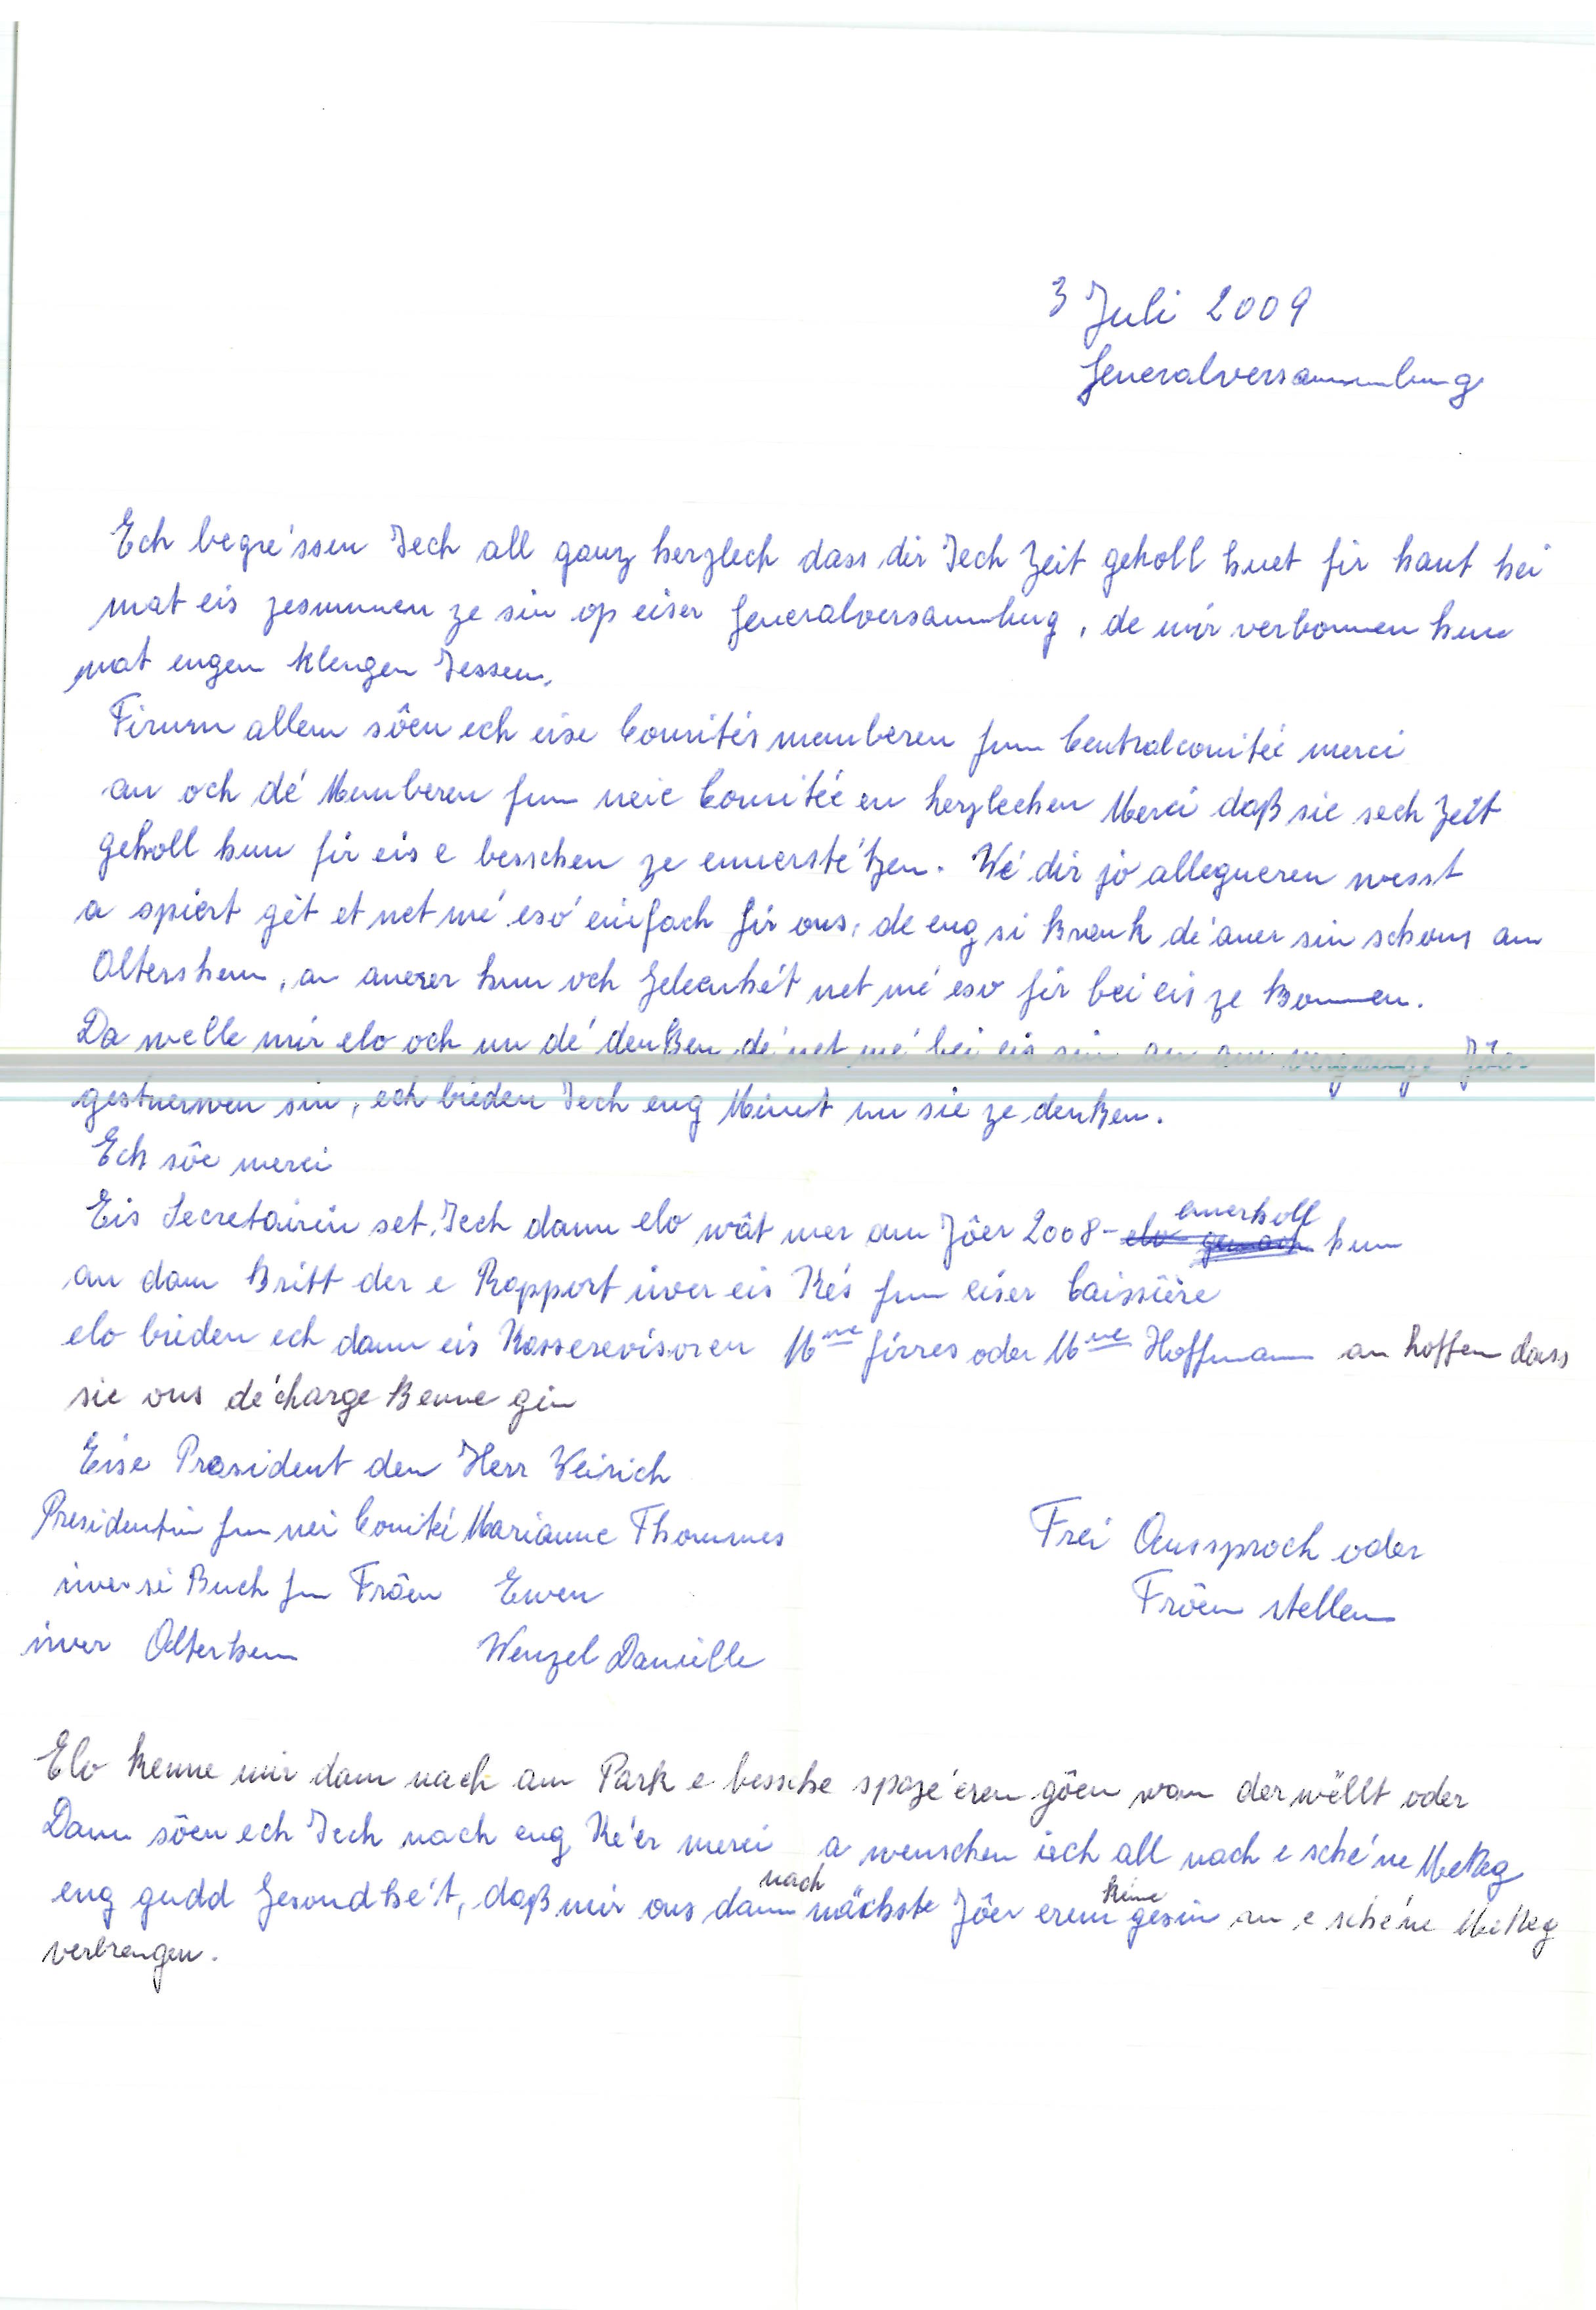 3 Juli 2009
Generalversammlung
Ech begre'ssen Iech all ganz herzlech dass dir Iech Zeit geholl huet fir haut hei
mat eis zesummen ze sin op eiser Generalversammlung, de mir verbonnen hun
mat engem klengen Iessen.
Firum allem sôen ech eise Comités memberen fum Centralcomitée merci
an och dé Memberen fum neie Comitée en herzlechen Merci daß sie sech Zeit
geholl hun fir eis e besschen ze ennersté'tzen. Wé dir jo allegueren wesst
a spiert gêt et net mé esó einfach fir ons, de eng si krank dé aner sin schons am
Altershem, an anerer hun och Geleenhét net mé eso fir bei eis ze kommen.
Da welle mir elo och un dé denken dé net mé bei eis sin an am vergange Jôer
gestuerwen sin, ech bieden Iech eng Minut un sie ze denken.
Ech sôe merci
Eis Secretairin set Iech dann elo wât mer am Jôer 2008 - elo gemach ennerholl hun
an dann kritt der e Rapport iwer eis Kés fum eiser Caissière
elo bieden ech dann eis Kasserevisoren Mme Girres oder Mme Hoffmann an hoffen dass
sie ons décharge kenne gin
Eise President den Herr Weirich
Presidentin fum nei Comité Marianne Thommes
iwer si Buch fun Frôen Ewen
iwer Alterhem Wenzel Danielle
Frei Aussproch oder
Frôen stellen
Elo kenne mir dann nach am Park e bessche spazé'eren gôen wann der wëllt oder
Dann sôen ech Iech nach eng Ké'er merci a wenschen iech all nach e sché'ne Metteg
eng gudd Gesondhé't, daß mir ons dann nach nächste Jôer erem kenne gesin an e sché'ne Metteg
verbrengen.